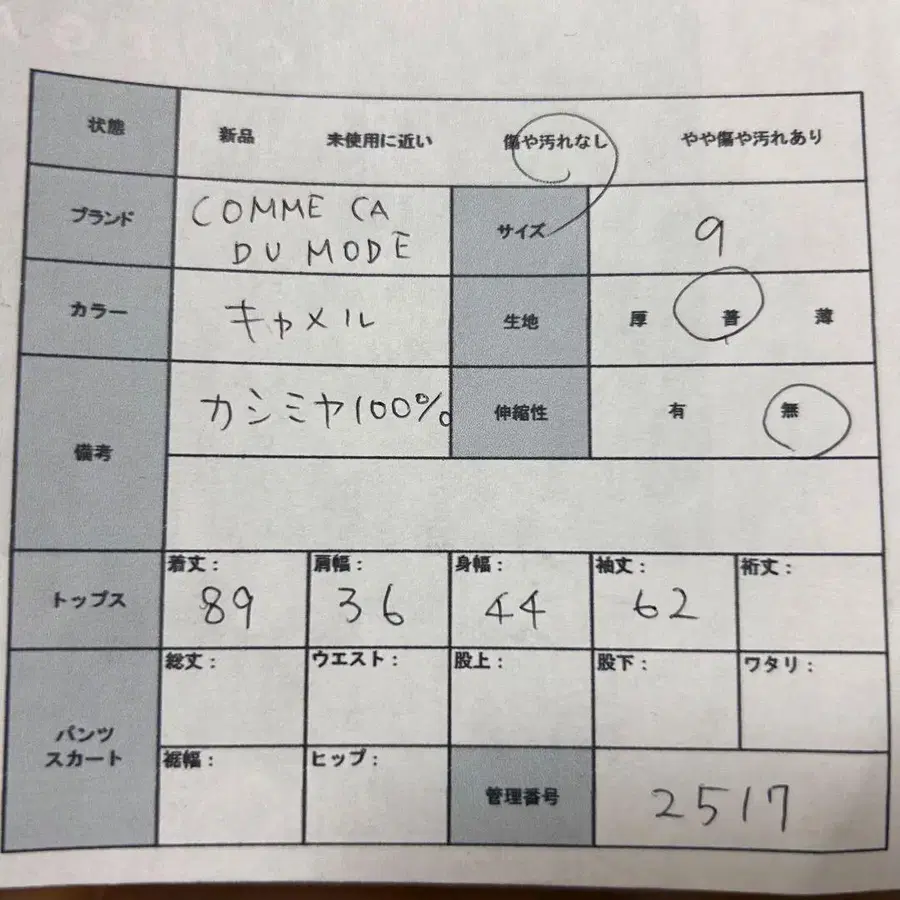 状態 新品 未使用に近い 傷や汚れなし やや傷や汚れあり
ブランド COMME CA
DU MODE
サイズ 9
カラー キャメル 生地 厚 普 薄
備考 カシミヤ100% 伸縮性 有 無
トップス 着丈: 肩幅: 身幅: 袖丈: 裄丈:
89 36 44 62
パンツ
スカート
総丈: ウエスト: 股上: 股下: ワタリ:
裾幅: ヒップ: 管理番号 2517